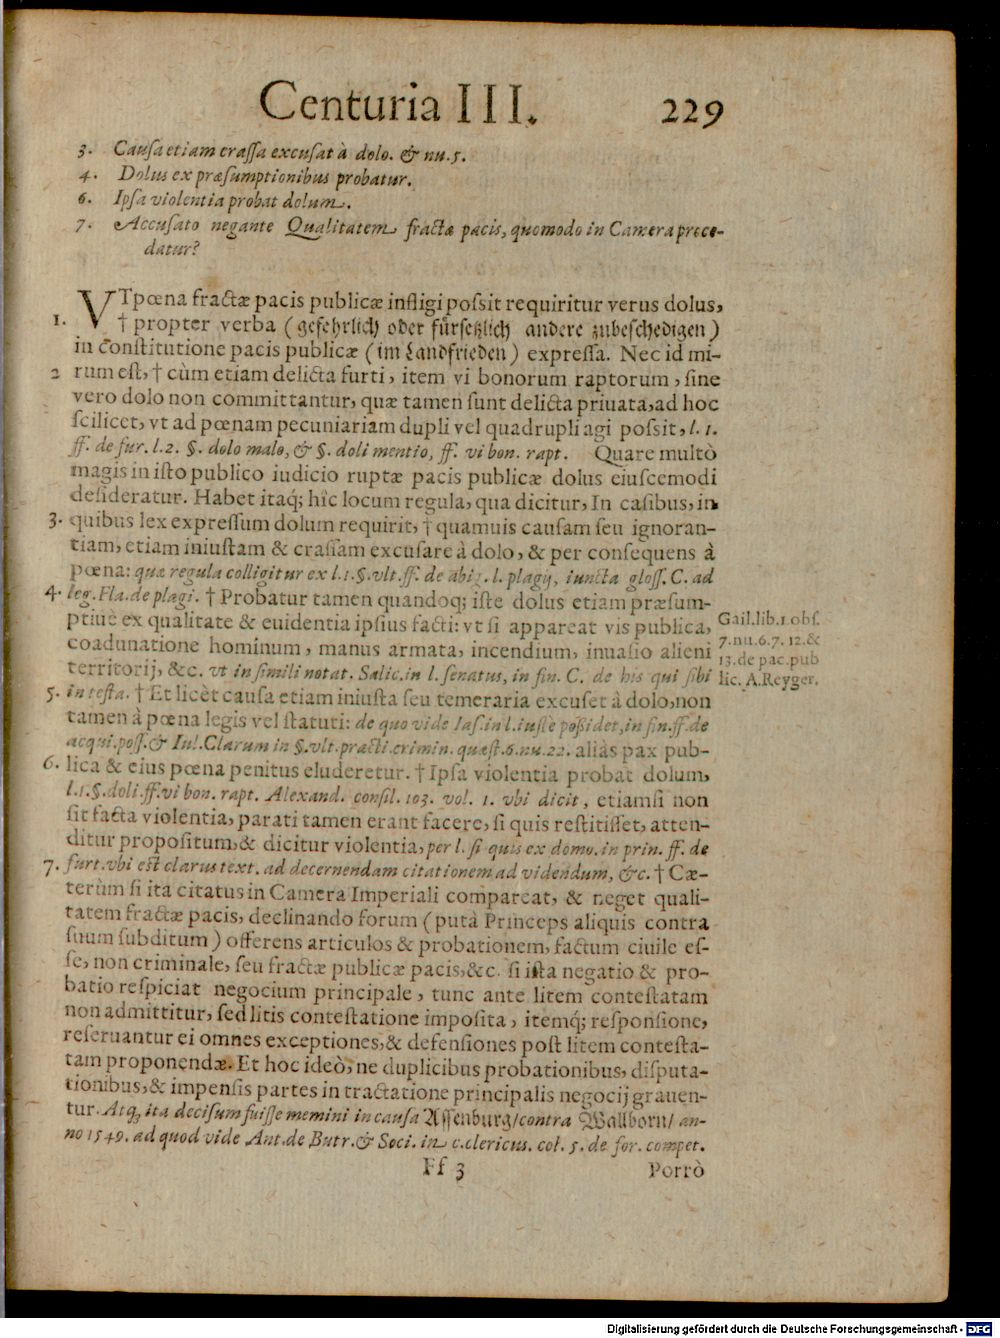 Centuria III. 229
3. Causa etiam crassa excusat à dolo. & nu. 5.
4. Dolus ex præsumptionibus probatur.
6. Ipsa violentia probat dolum.
7. Accusato negante Qualitatem fractæ pacis, quomodo in Camera proce-
datur?
VTpœna fractæ pacis publicæ infligi possit requiritur verus dolus,
1. † propter verba (gefehrlich oder fürsetzlich andere zubeschedigen)
in constitutione pacis publicæ (im Landfrieden) expressa. Nec id mi-
2 rum est, † cùm etiam delicta furti, item vi bonorum raptorum, sine
vero dolo non committantur, quæ tamen sunt delicta priuata, ad hoc
scilicet, vt ad pœnam pecuniariam dupli vel quadrupli agi possit, l. 1.
ff. de fur. l. 2. §. dolo malo, & §. doli mentio, ff. vi bon. rapt. Quare multò
magis in isto publico iudicio ruptæ pacis publicæ dolus eiuscemodi
desideratur. Habet itaq; hîc locum regula, qua dicitur, In casibus, in
3. quibus lex expressum dolum requirit, † quamuis causam seu ignoran-
tiam, etiam iniustam & crassam excusare à dolo, & per consequens à
pœna: quæ regula colligitur ex l. 1. §. vlt. ff. de abig. l. plagij, iuncta gloss. C. ad
4. leg. Fla. de plagi. † Probatur tamen quandoq; iste dolus etiam præsum-
ptiuè ex qualitate & euidentia ipsius facti: vt si appareat vis publica,
coadunatione hominum, manus armata, incendium, inuasio alieni
territorij, &c. vt in simili notat. Salic. in l. senatus, in fin. C. de his qui sibi
Gail. lib. 1 obs.
7. nu. 6. 7. 12. &
13. de pac. pub
lic. A. Reyger.
5. in testa. † Et licèt causa etiam iniusta seu temeraria excuset à dolo, non
tamen à pœna legis vel statuti: de quo vide Ias. in l. iustè possidet, in fin. ff. de
acqui. poss. & Iul. Clarum in §. vlt. practi. crimin. quæst. 6. nu. 22. aliàs pax pub-
6. lica & eius pœna penitus eluderetur. † Ipsa violentia probat dolum,
l. 1. §. doli. ff. vi bon. rapt. Alexand. consil. 103. vol. 1. vbi dicit, etiamsi non
sit facta violentia, parati tamen erant facere, si quis restitisset, atten-
ditur propositum, & dicitur violentia, per l. si quis ex domo. in prin. ff. de
7. furt. vbi est clarus text. ad decernendam citationem ad videndum, &c. † Cæ-
terùm si ita citatus in Camera Imperiali compareat, & neget quali-
tatem fractæ pacis, declinando forum (putà Princeps aliquis contra
suum subditum) offerens articulos & probationem, factum ciuile es-
se, non criminale, seu fractæ publicæ pacis, &c. si ista negatio & pro-
batio respiciat negocium principale, tunc ante litem contestatam
non admittitur, sed litis contestatione imposita, itemq́; responsione,
reseruantur ei omnes exceptiones, & defensiones post litem contesta-
tam proponendæ. Et hoc ideò, ne duplicibus probationibus, disputa-
tionibus, & impensis partes in tractatione principalis negocij grauen-
tur. Atq; ita decisum fuisse memini in causa Assenburg/ contra Wallborn/ an-
no 1549. ad quod vide Ant. de Butr. & Soci. in c. clericus. col. 5. de for. compet.
Ff 3 Porrò
Digitalisierung gefördert durch die Deutsche Forschungsgemeinschaft - DFG